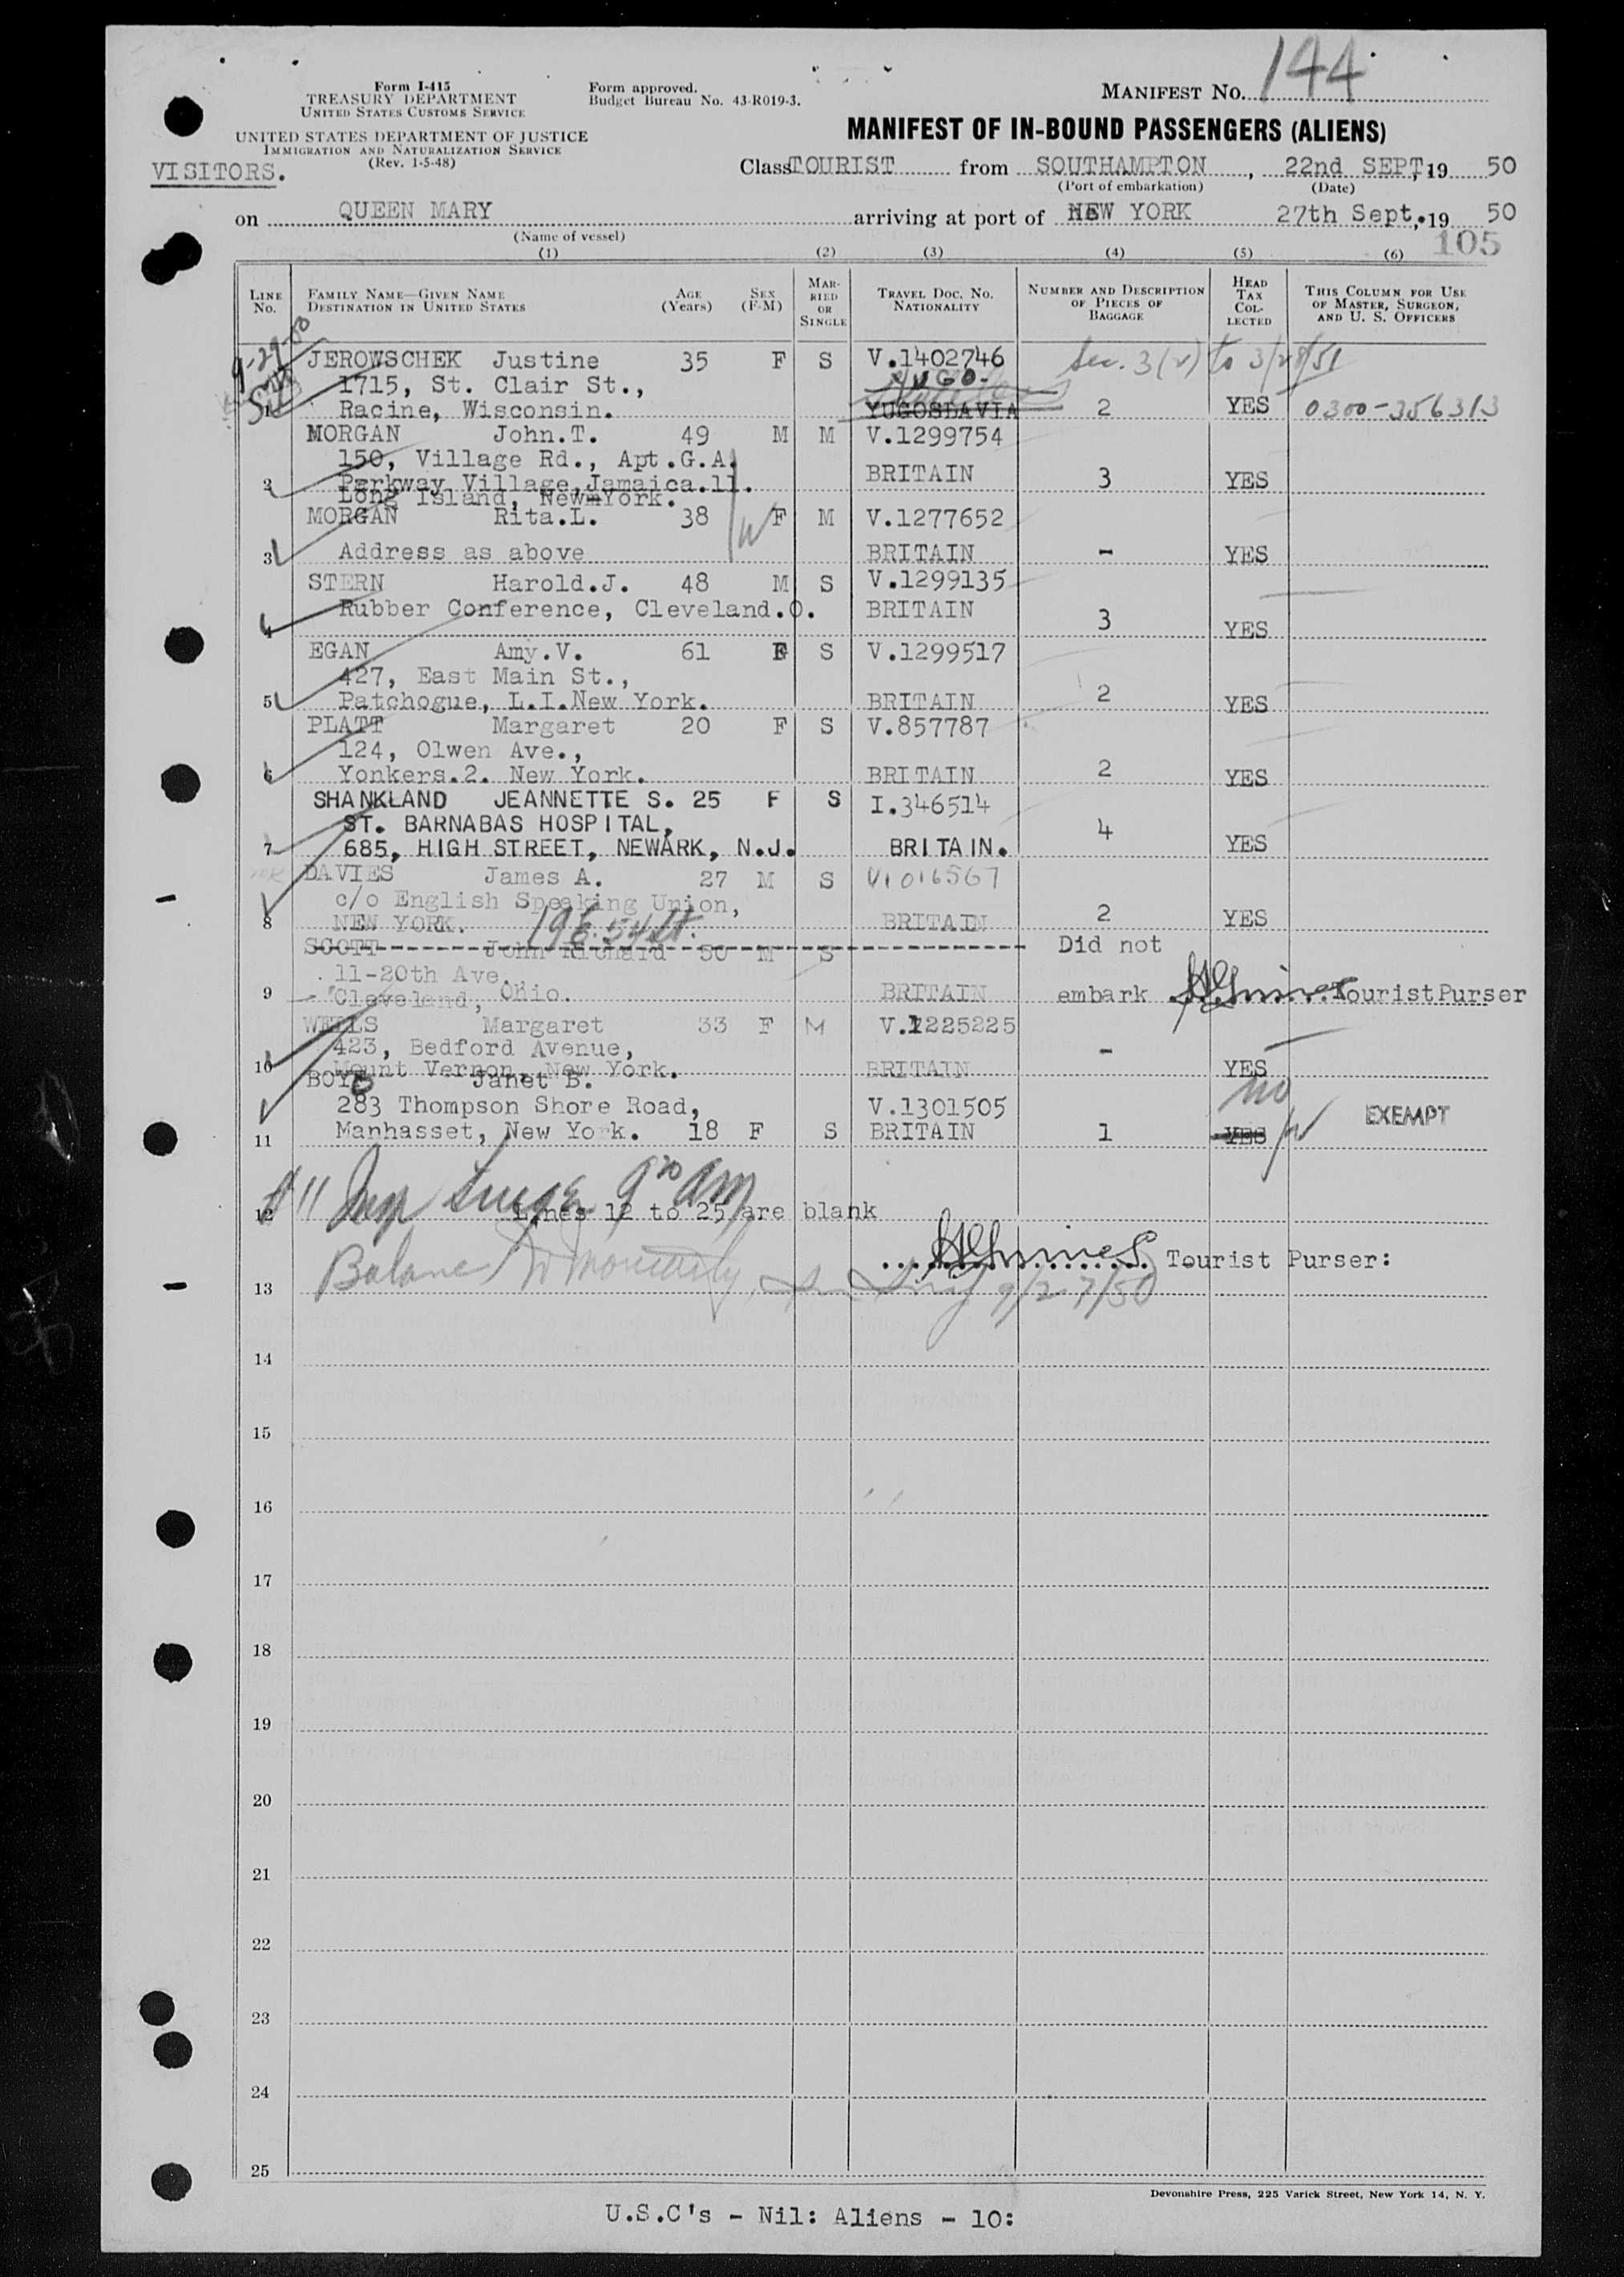 144
Form I-415
TREASURY DEPARTMENT
UNITED STATES CUSTOMS SERVICE
Form approved.
Budget Bureau No. 43-R019-3.
MANIFEST No.
UNITED STATES DEPARTMENT OF JUSTICE
IMMIGRATION AND NATURALIZATION SERVICE
(Rev. 1-5-48)
MANIFEST OF IN-BOUND PASSENGERS (ALIENS)
VISITORS.
Class TOURIST from SOUTHAMPTON, 22nd SEPT, 19 50
(Port of embarkation) (Date)
on QUEEN MARY arriving at port of NEW YORK 27th Sept. 19 50
(Name of vessel)
105
(1) (2) (3) (4) (5) (6)
LINE No. FAMILY NAME—GIVEN NAME DESTINATION IN UNITED STATES AGE (Years) SEX (F-M) MARRIED OR SINGLE TRAVEL DOC. NO. NATIONALITY NUMBER AND DESCRIPTION OF PIECES OF BAGGAGE HEAD TAX COLLECTED THIS COLUMN FOR USE OF MASTER, SURGEON, AND U. S. OFFICERS
9-29-50
JEROWSCHEK Justine 35 F S V.1402746 Sec. 3(2) to 3/28/51
1715, St. Clair St., YUGO-
1 Racine, Wisconsin. YUGOSLAVIA 2 YES 0300-356313
MORGAN John.T. 49 M M V.1299754
150, Village Rd., Apt.G.A.
2 Parkway Village,Jamaica.11. BRITAIN 3 YES
Long Island, New York.
MORGAN Rita.L. 38 F M V.1277652
3 Address as above BRITAIN - YES
STERN Harold.J. 48 M S V.1299135
Rubber Conference, Cleveland.O. BRITAIN
4 3 YES
EGAN Amy.V. 61 F S V.1299517
427, East Main St.,
5 Patchogue, L.I.New York. BRITAIN 2 YES
PLATT Margaret 20 F S V.857787
124, Olwen Ave.,
6 Yonkers.2. New York. BRITAIN 2 YES
SHANKLAND JEANNETTE S. 25 F S I.346514
ST. BARNABAS HOSPITAL,
7 685, HIGH STREET, NEWARK, N.J. BRITAIN. 4 YES
DAVIES James A. 27 M S V1016567
c/o English Speaking Union,
8 NEW YORK. BRITAIN 2 YES
SCOTT John Richard 50 M S Did not
11-20th Ave.
9 Cleveland, Ohio. BRITAIN embark Tourist Purser
WELLS Margaret 33 F M V.1225225
423, Bedford Avenue,
10 Mount Vernon, New York. BRITAIN - YES
BOYD Janet B. no
283 Thompson Shore Road, V.1301505 EXEMPT
11 Manhasset, New York. 18 F S BRITAIN 1 YES
9 30 am
12 Lines 12 to 25 are blank
Tourist Purser:
13 9/27/50
14
15
16
17
18
19
20
21
22
23
24
25
Devonshire Press, 225 Varick Street, New York 14, N. Y.
U.S.C's - Nil: Aliens - 10: